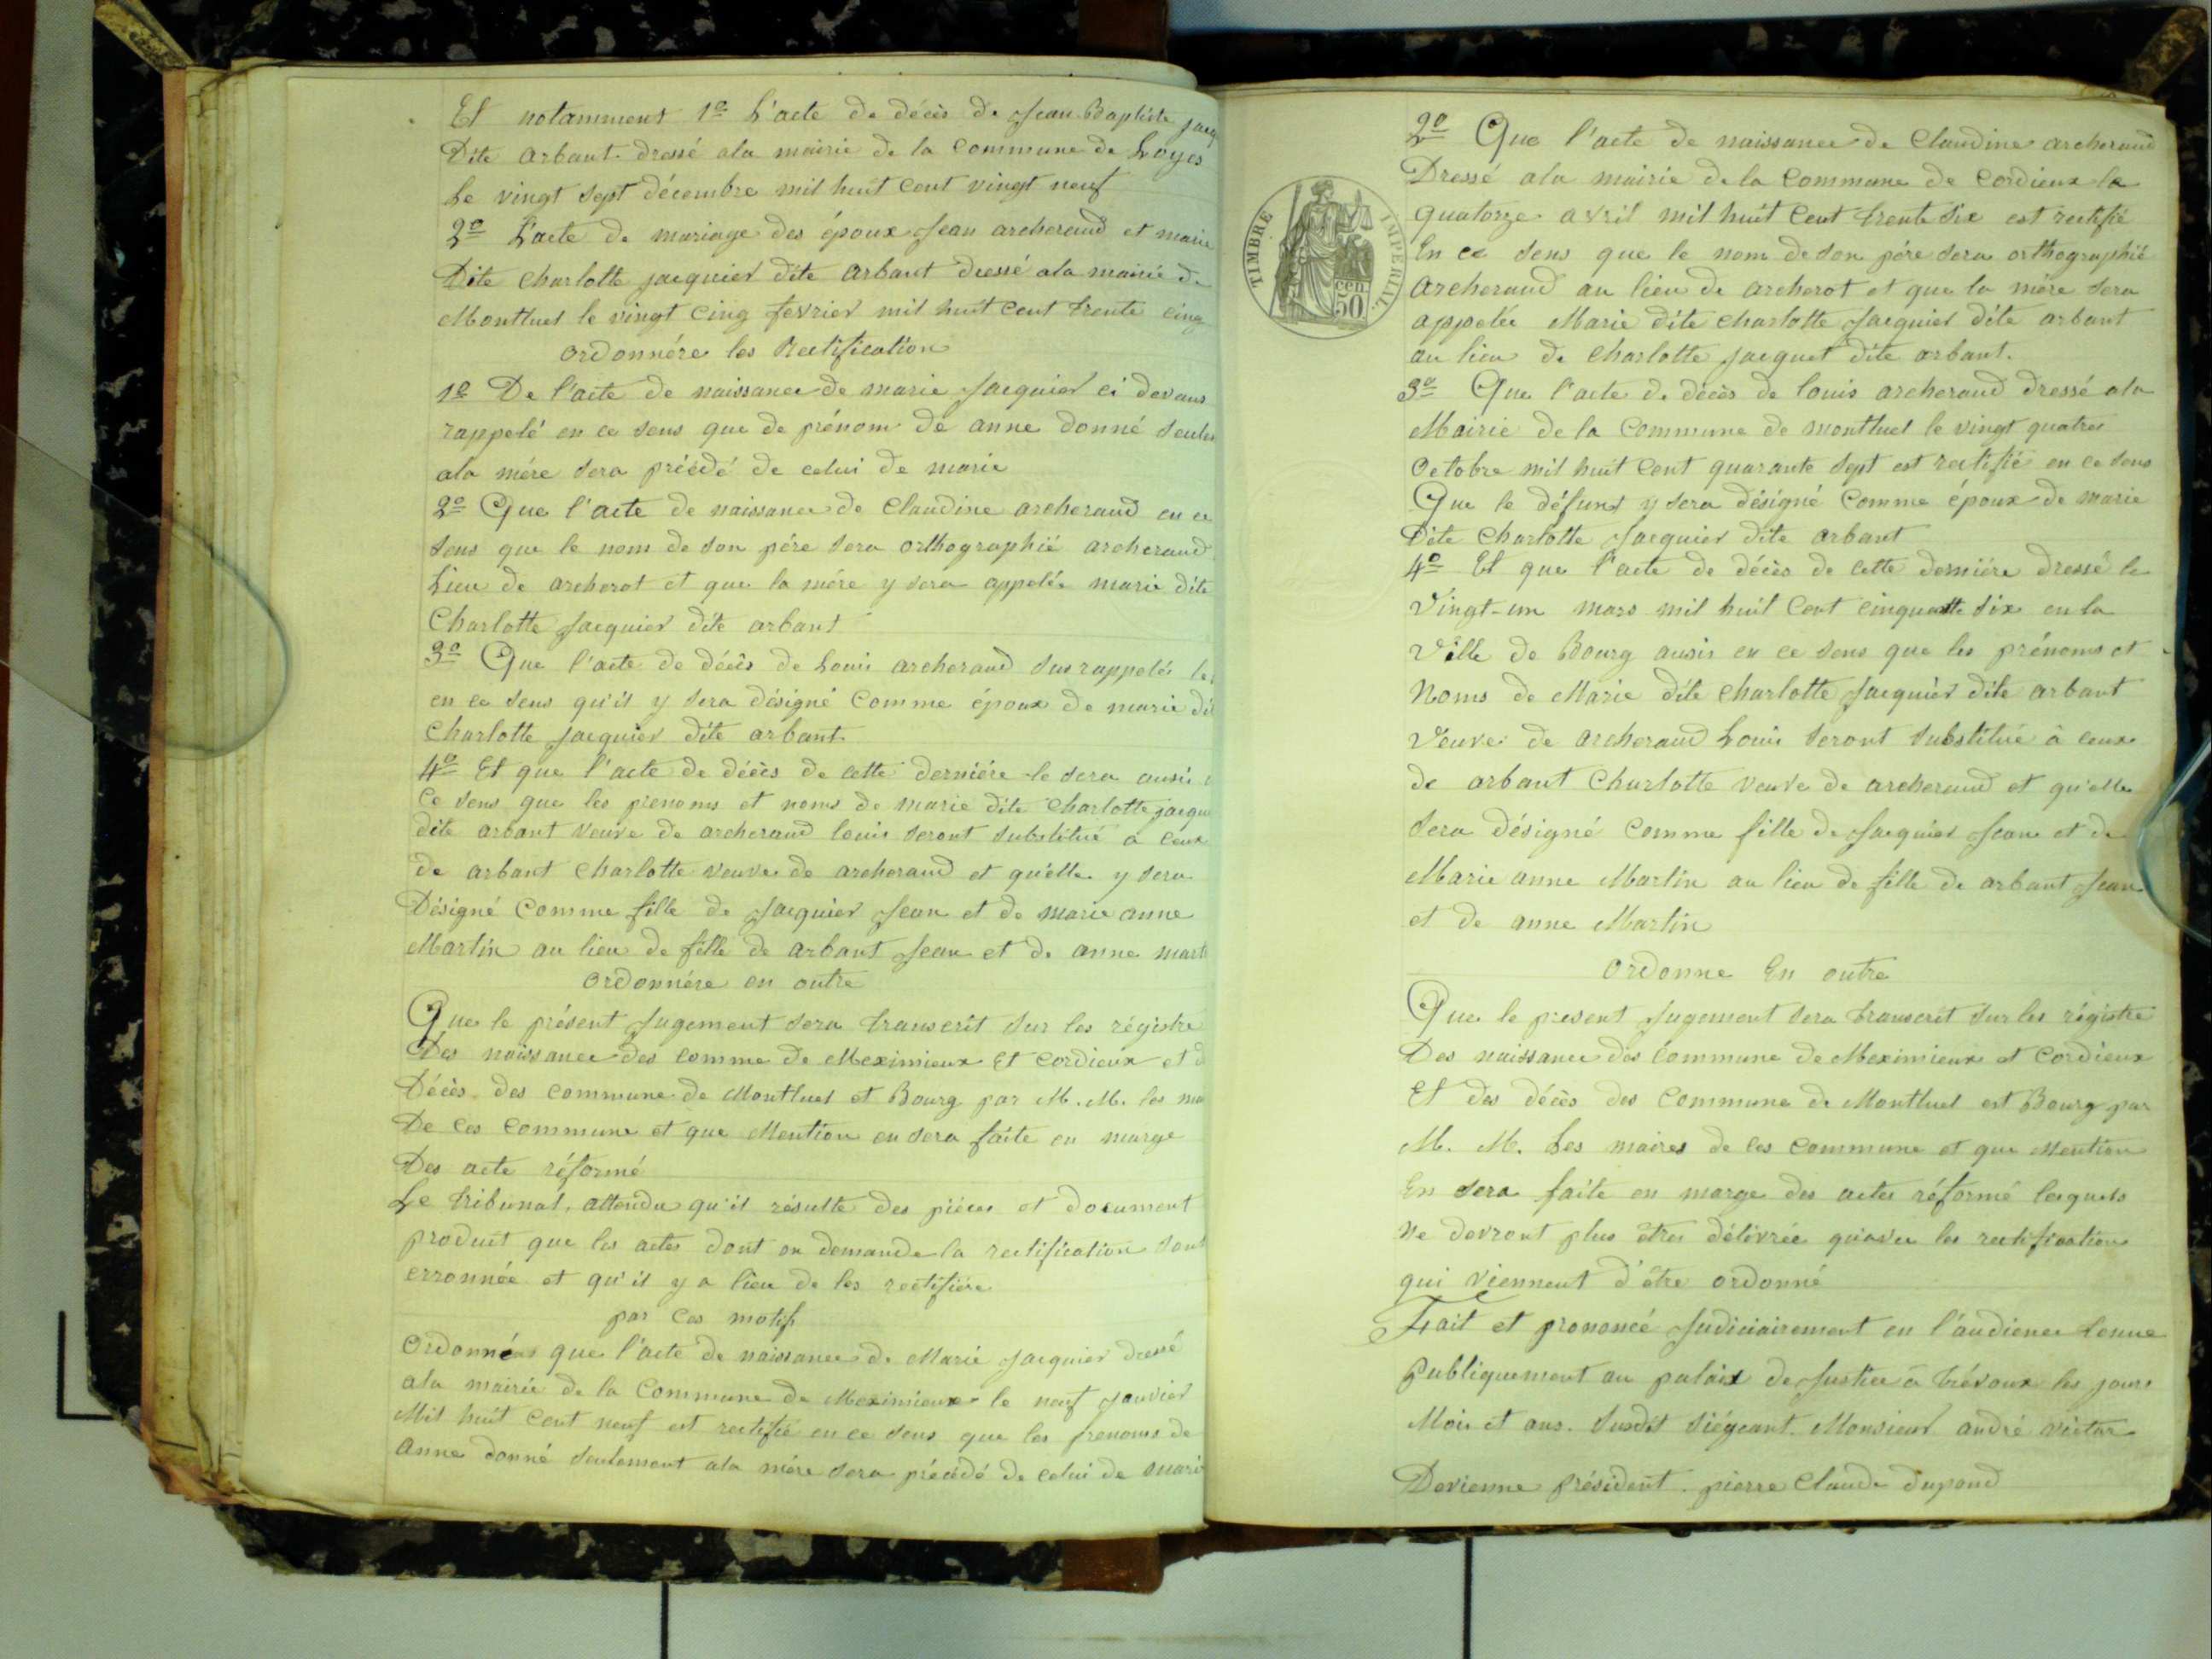 Et notamment 1º L'acte de décès de Jean Baptiste jacq
Dite arbant. dressé ala mairie de la Commune de Loyes
Le vingt sept décembre mil huit cent vingt neuf
2º L'acte de mariage des époux Jean archeraud et marie
Dite charlotte jacquier dite arbant dressé ala mairie de
Montluel le vingt cinq fevrier mil huit cent trente cinq
ordonnére les Rectification
1º De l'acte de naissance de marie Jacquier ci devans
rappelé en ce sens que de prénom de anne donné seulem
ala mére sera précédé de celui de marie
2º Que l'acte de naissance de Claudine archeraud en ce
sens que le nom de son pére sera orthographié archeraud
Lieu de archerot et que la mére y sera appelée marie dite
Charlotte Jacquier dite arbant
3º Que l'acte de décès de Louis archeraud sus rappelés le
en ce sens qu'il y sera désigné Comme époux de marie di
Charlotte Jacquier dite arbant.
4º Et que l'acte de décès de cette derniére le sera aussi
Ce sens que les prenoms et noms de marie dite Charlotte jacqu
dite arbant veuve de archeraud louis seront substitué a ceux
de arbant Charlotte veuve de archeraud et qu'elle y sera
Désigné Comme fille de Jacquier Jean et de marie anne
Martin au lieu de fille de arbant Jean et de anne mart
ordonnére en outre
Que le présent Jugement sera transcrit sur les régistre
Des naissance des comme de Meximieux Et cordieux et d
Décès des commune de Montluel et Bourg par M. M. les ma
De ces Commune et que Mention en sera faite en marge
Des acte réformé
Le tribunal, attendu qu'il résulte des piéces et document
produit que les actes dont on demande la rectification sont
erronnée et qu'il y a lieu de les rectifiére
par ces motifs
Ordonné que l'acte de naissance de Marie Jacquier dressé
ala mairie de la Commune de Meximieux le neuf Janvier
Mil huit Cent neuf est rectifié en ce sens que les prenoms de
anne donné seulement ala mére sera précédé de celui de marie
2º Que l'acte de naissance de Claudine archeraud
Dressé ala mairie de la Commune de Cordieux la
quatorze avril mil huit Cent trente six est rectifié
En ce sens que le nom de son pére sera orthographié
archeraud au lieu de archerot et que la mére sera
appelée Marie dite charlotte Jacquier dite arbant
au lieu de Charlotte Jacquet dite arbant.
3º Que l'acte de décès de louis archeraud dressé ala
Mairie de la Commune de montluel le vingt quatres
Octobre mil huit Cent quarante sept est rectifié en ce sens
Que le défunt y sera désigné Comme époux de marie
Dite Charlotte Jacquier dite arbant
4º Et que l'acte de décès de cette derniére dressé le
Vingt-un mars mil huit Cent cinquante six en la
Ville de Bourg aussi en ce sens que les prénoms et
Noms de Marie dite Charlotte Jacquier dite arbant
Veuve de archeraud Louis seront substitué à ceux
de arbant Charlotte veuve de archeraud et qu'elle
sera désigné comme fille de Jacquier Jean et de
Marie anne Martin au lieu de fille de arbant Jean
et de anne Martin
Ordonne En outre
Que le present Jugement sera transcrit sur les régistre
Des naissance des Commune de Meximieux et Cordieux
Et des décès des Commune de Montluel est Bourg par
M. M. Les maires de ces Commune et que Mention
En sera faite en marge des actes réformé lesquels
Ne devront plus êtres délivrée qu'avec les rectification
qui viennent d'être ordonné
Fait et prononcé Judiciairement en l'audience tenue
Publiquement au palaix de Justice à trévoux les jours
Mois et ans. Susdit siégeant. Monsieur andré victor
Devienne président. pierre Claude dupond
TIMBRE IMPERIAL.
50 cen.